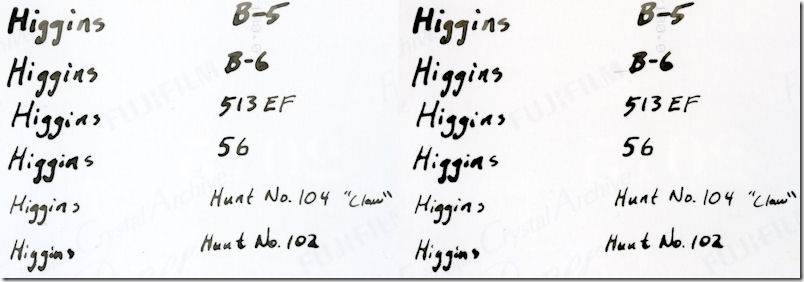 Higgins B-5 Higgins B-5
Higgins B-6 Higgins B-6
Higgins 513 EF Higgins 513 EF
Higgins 56 Higgins 56
Higgins Hunt No. 104 "Claw" Higgins Hunt No. 104 "Claw"
Higgins Hunt No. 102 Higgins Hunt No. 102
FUJIFILM FUJIFILM
Crystal Archive Crystal Archive
Paper
FUJIFILM FUJIFILM